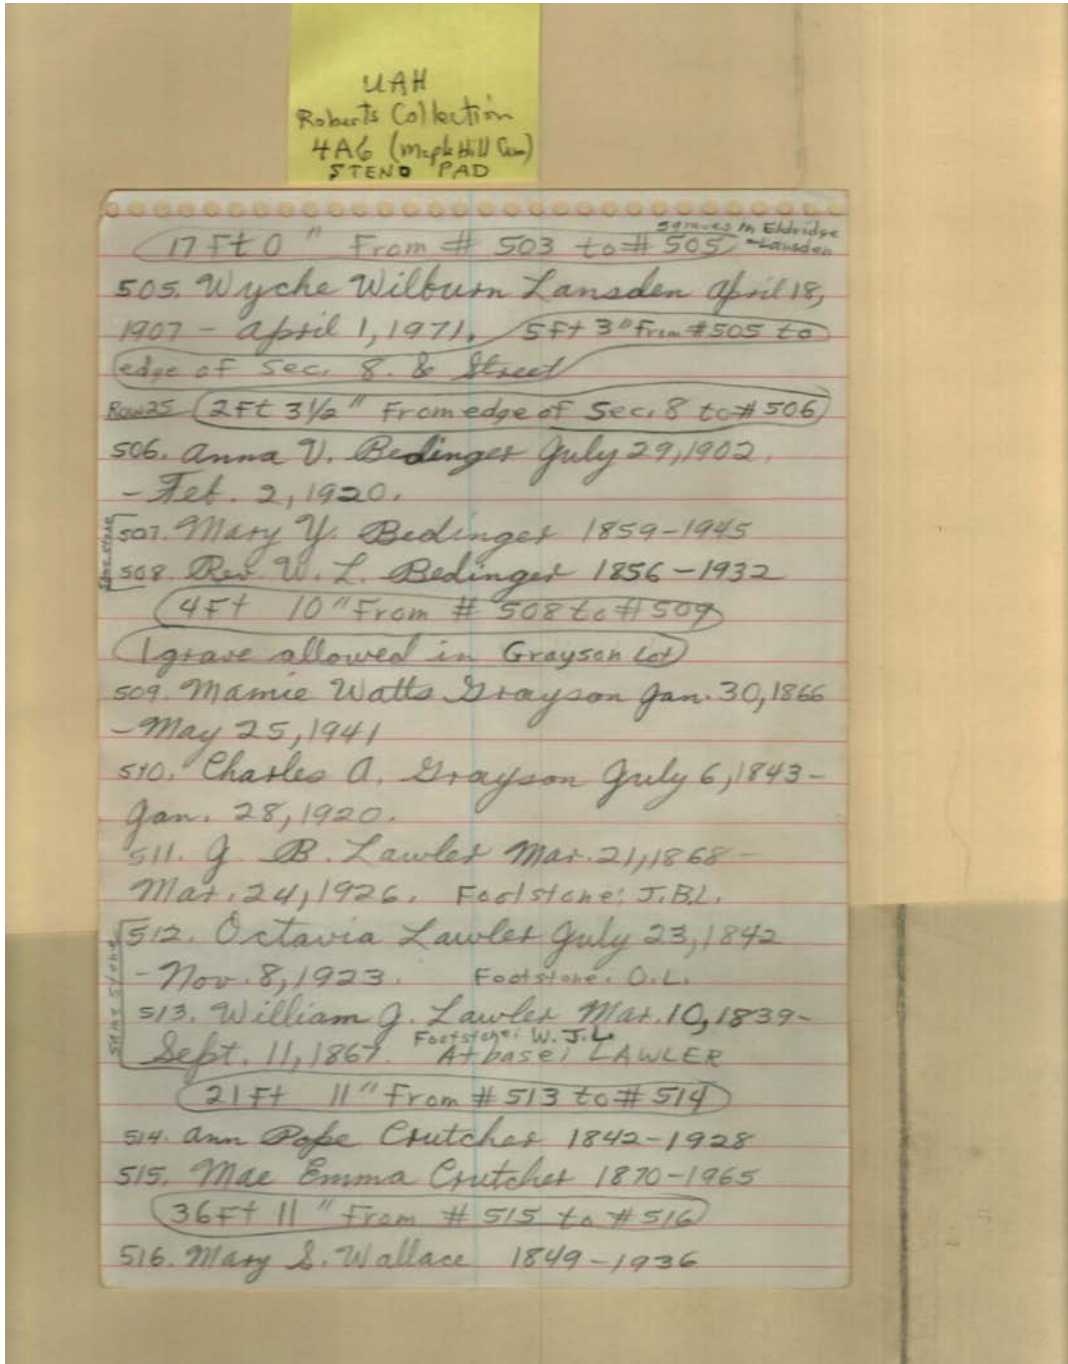 UAH
Roberts Collection
4A6 (Maple Hill Cem)
STENO PAD
5 graves in Eldridge
17 Ft 0" From # 503 to # 505 - Lansden
505. Wyche Wilburn Lansden April 18,
1907 - April 1, 1971. 5 Ft 3" From #505 to
edge of Sec. 8. & Street
Row 25 2 Ft 3 1/2" From edge of Sec. 8 to # 506
506. Anna V. Bedinger July 29, 1902.
- Feb. 2, 1920.
Same stone
507. Mary Y. Bedinger 1859-1945
508. Rev. W. L. Bedinger 1856-1932
4 Ft 10" From # 508 to # 509
1 grave allowed in Grayson Lot
509. Mamie Watts Grayson Jan. 30, 1866
- May 25, 1941
510. Charles A. Grayson July 6, 1843-
Jan. 28, 1920.
511. J B. Lawler Mar. 21, 1868-
Mar. 24, 1926. Footstone: J.B.L.
same stone
512. Octavia Lawler July 23, 1842
- Nov. 8, 1923. Footstone: O.L.
513. William J. Lawler Mar. 10, 1839-
Footstone: W.J.L.
Sept. 11, 1867. At base: LAWLER
21 Ft 11" From # 513 to # 514
514. Ann Pope Crutcher 1842-1928
515. Mae Emma Crutcher 1870-1965
36 Ft 11" From # 515 to # 516
516. Mary S. Wallace 1849-1936